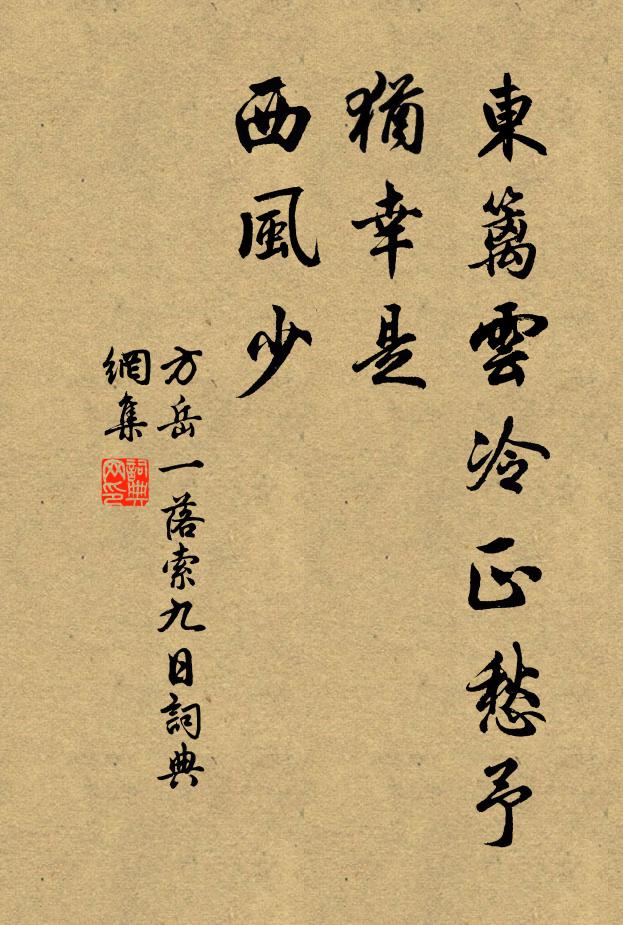 東籬雲冷正愁予
猶幸是
西風少
方岳一落索九日詞典
網集
詞典網印